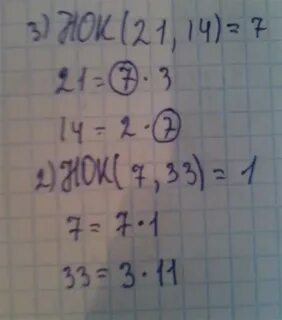 3) НОК(21, 14) = 7
21 = 7 · 3
14 = 2 · 7
2) НОК(7, 33) = 1
7 = 7 · 1
33 = 3 · 11